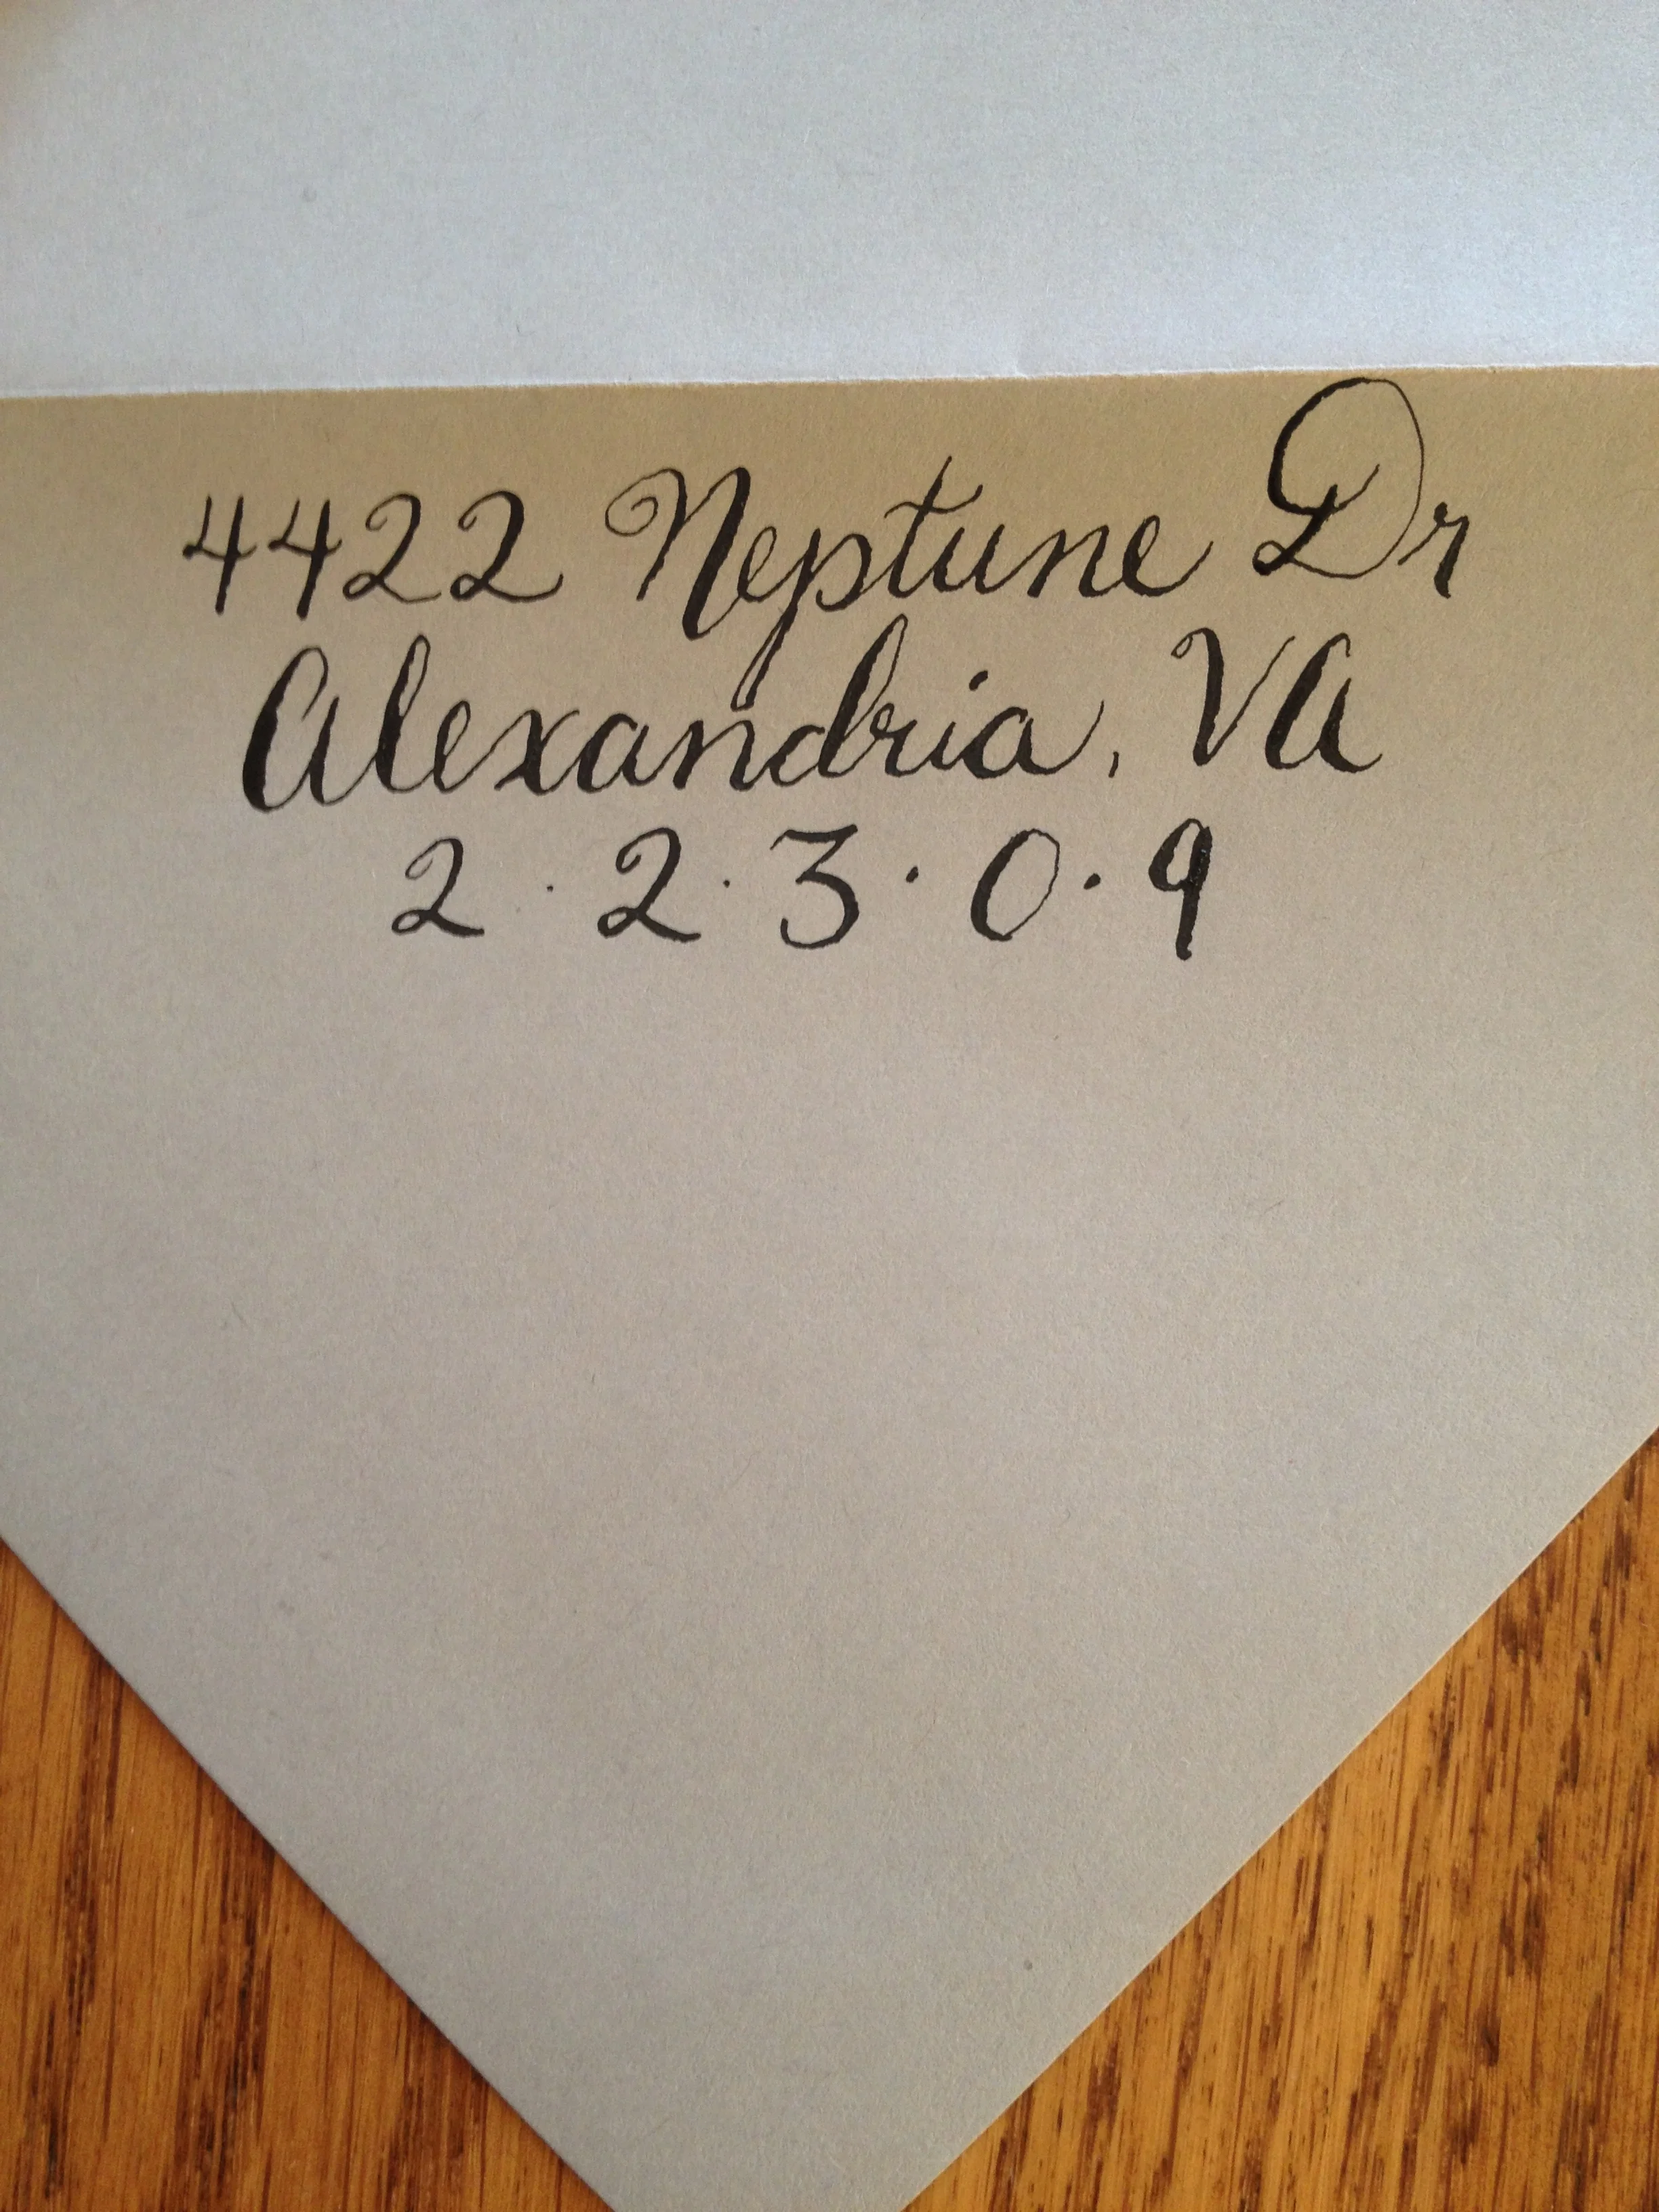 4422 Neptune Dr
Alexandria, VA
2·2·3·0·9